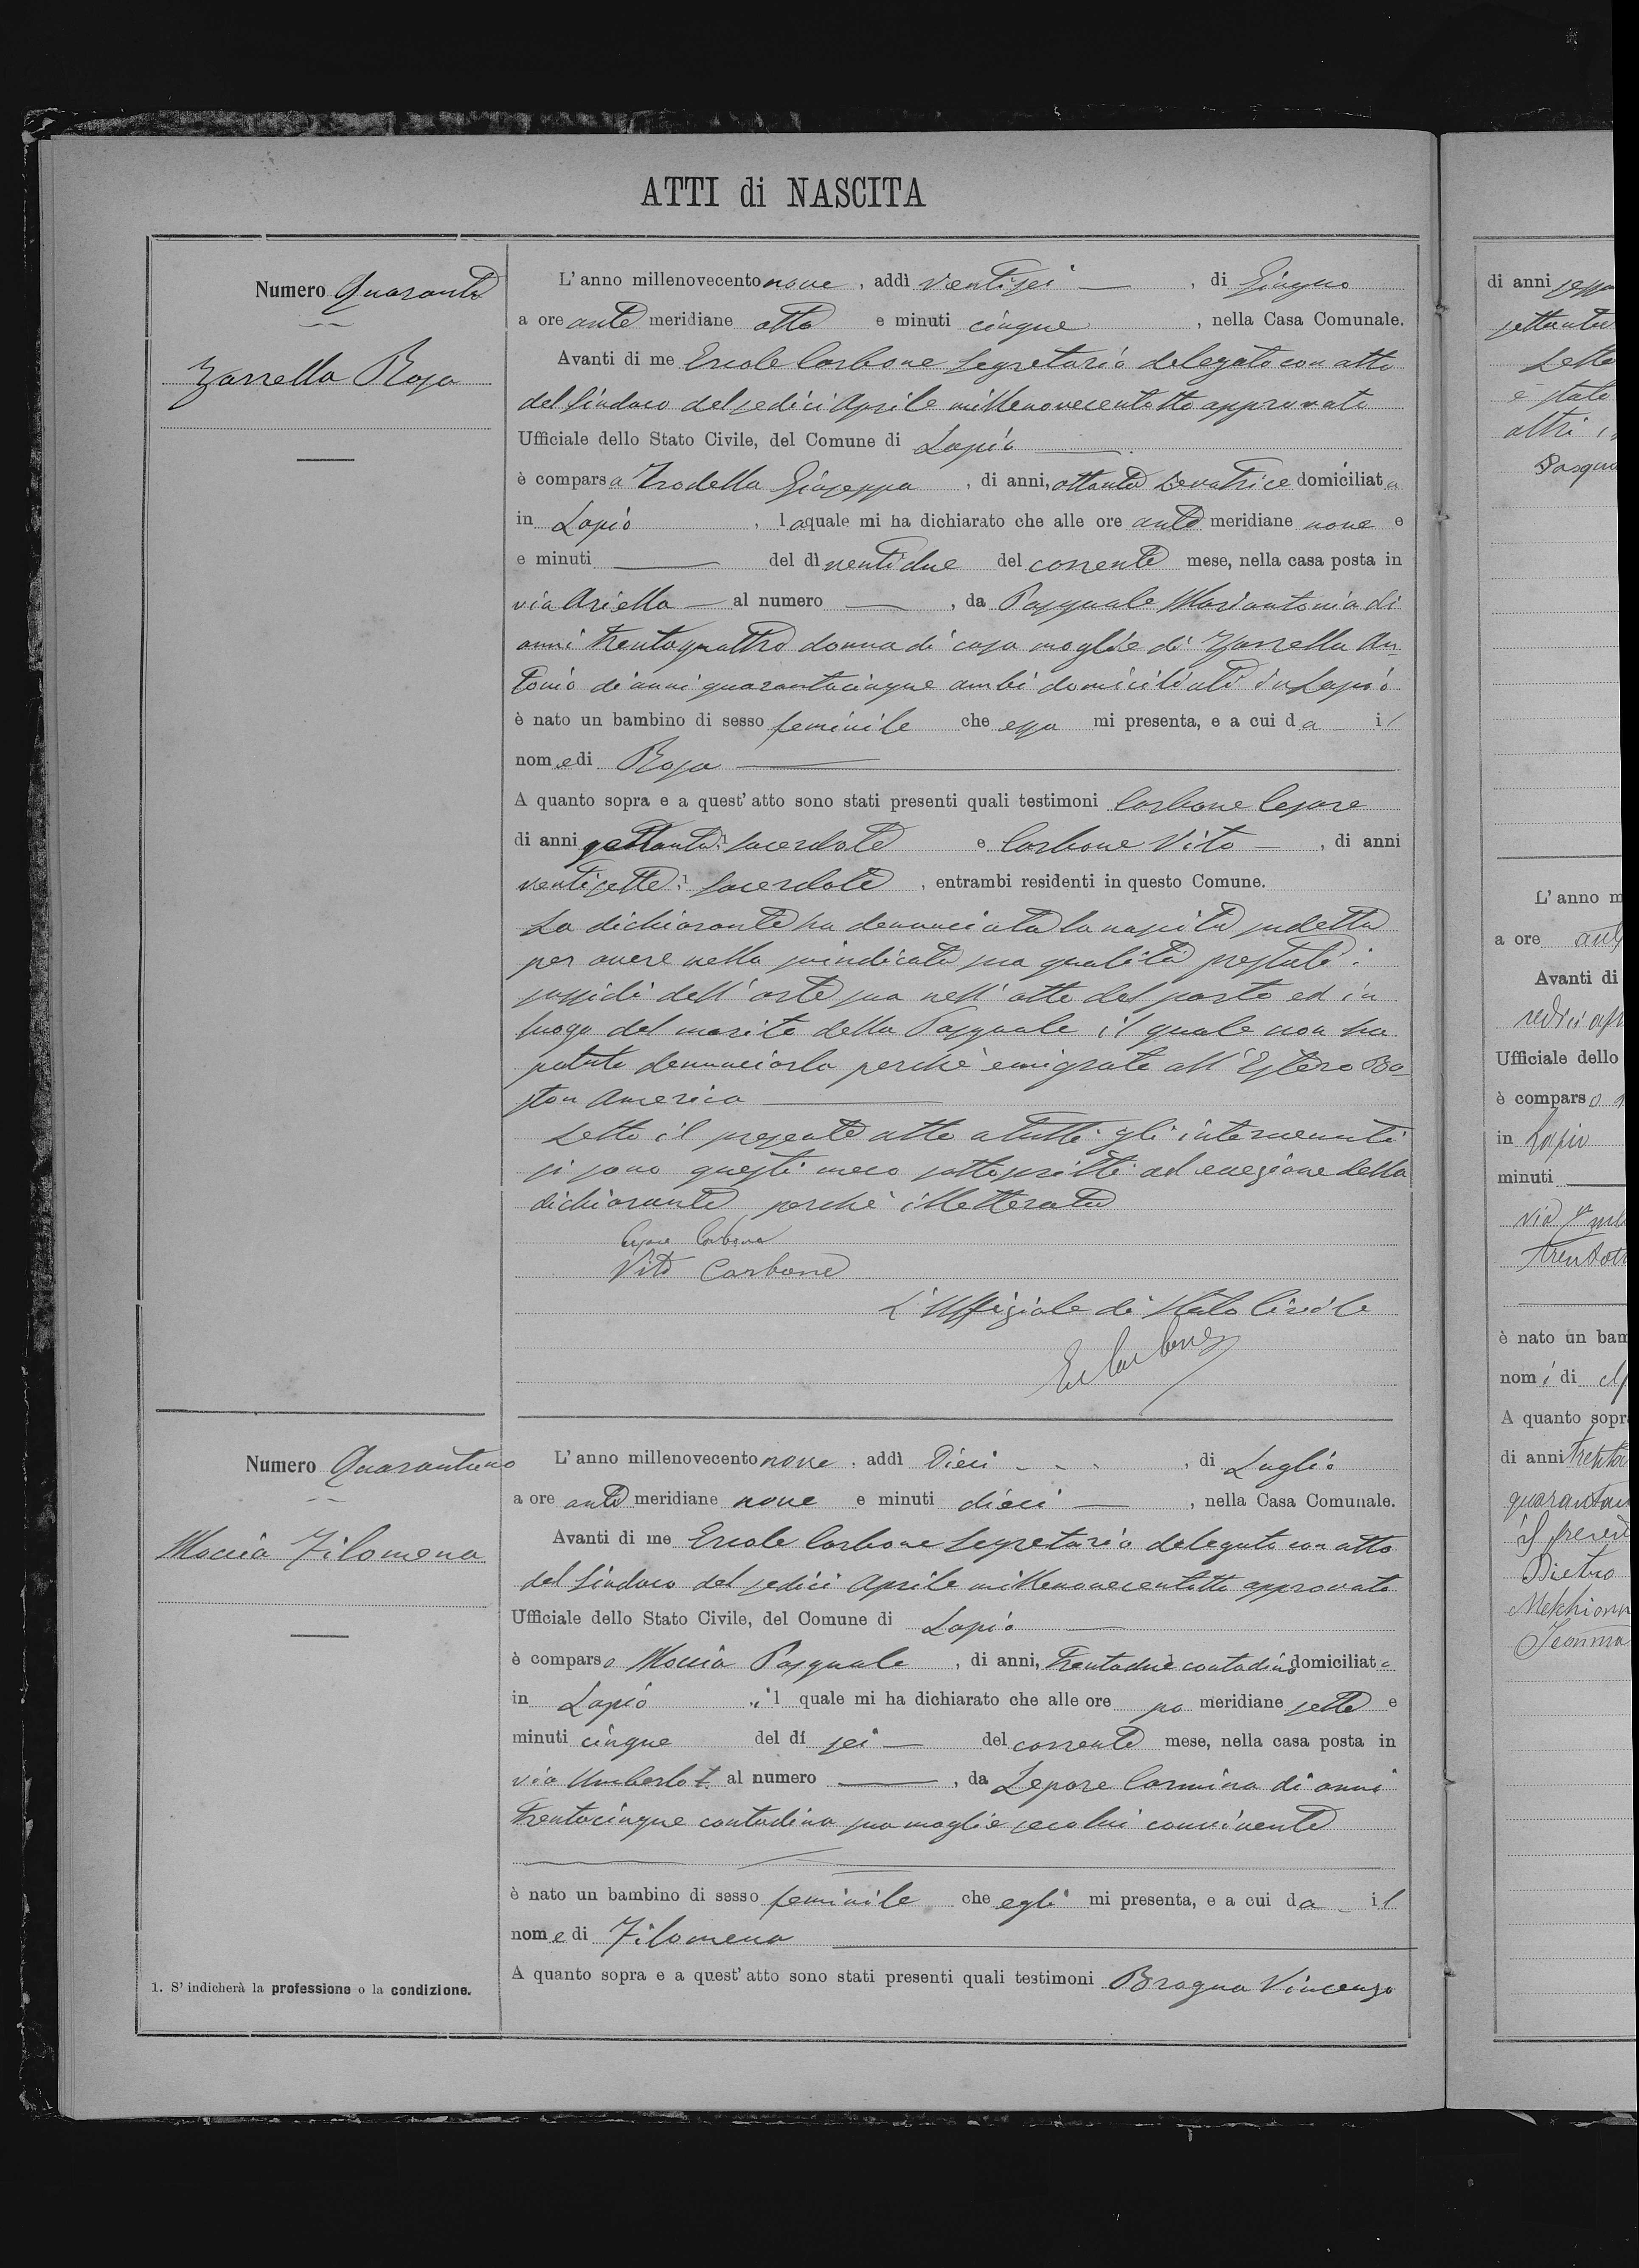 ATTI di NASCITA
Numero Quaranta
Zarrella Rosa
L'anno millenovecento nove, addì ventisei — , di Giugno
a ore ante meridiane otto e minuti cinque , nella Casa Comunale.
Avanti di me Ercole Carbone Segretario delegato con atto
del Sindaco del sedici Aprile millenovecentotto approvato
Ufficiale dello Stato Civile, del Comune di Lapio —
è comparsa Trodella Giuseppa , di anni, ottanta Levatrice domiciliata
in Lapio , la quale mi ha dichiarato che alle ore ante meridiane nove e
e minuti — del dì ventidue del corrente mese, nella casa posta in
via Ariella — al numero — , da Pasquale Mariantonia di
anni trentaquattro donna di casa moglie di Zarrella An-
tonio di anni quarantacinque ambi domiciliati in Lapio
è nato un bambino di sesso feminile che essa mi presenta, e a cui da il
nome di Rosa —
A quanto sopra e a quest'atto sono stati presenti quali testimoni Carbone Cesare
di anni settanta: Sacerdote e Carbone Vito — , di anni
ventisette: Sacerdote , entrambi residenti in questo Comune.
La dichiarante ha denunciata la nascita sudetta
per avere nella suindicata sua qualità prestati i
sussidi dell'arte sua nell'atto del parto ed in
luogo del marito della Pasquale il quale non ha
potuto denunciarla perchè emigrato all'Estero Bo-
ston America —
Letto il presente atto a tutti gli intervenuti
si sono questi meco sottoscritti ad eccezione della
dichiarante, perchè illetterata
Cesare Carbone
Vito Carbone
L'Uffiziale di Stato Civile
E. Carbone
Numero Quarantuno
Moccia Filomena
L'anno millenovecento nove, addì Dieci - - - , di Luglio
a ore ante meridiane nove e minuti dieci — , nella Casa Comunale.
Avanti di me Ercole Carbone Segretario delegato con atto
del Sindaco del sedici Aprile millenovecentotto approvato
Ufficiale dello Stato Civile, del Comune di Lapio —
è comparso Moccia Pasquale , di anni, trentadue contadino domiciliato
in Lapio , il quale mi ha dichiarato che alle ore po meridiane sette e
minuti cinque del dì sei — del corrente mese, nella casa posta in
via Umberto I. al numero — , da Lepore Carmina di anni
trentacinque contadina sua moglie seco lui convivente
è nato un bambino di sesso feminile che egli mi presenta, e a cui da il
nome di Filomena —
A quanto sopra e a quest'atto sono stati presenti quali testimoni Bragna Vincenzo
1. S'indicherà la professione o la condizione.
di anni
settanta
Lette
è stato
altri
Pasqua
L'anno m
a ore ant
Avanti di
sedici apr
Ufficiale dello
è comparso
in Lapio
minuti —
via
Trentott
è nato un bam
nomi di
A quanto sopr
di anni trenta
quarantan
il presen
Pietro
Melchionn